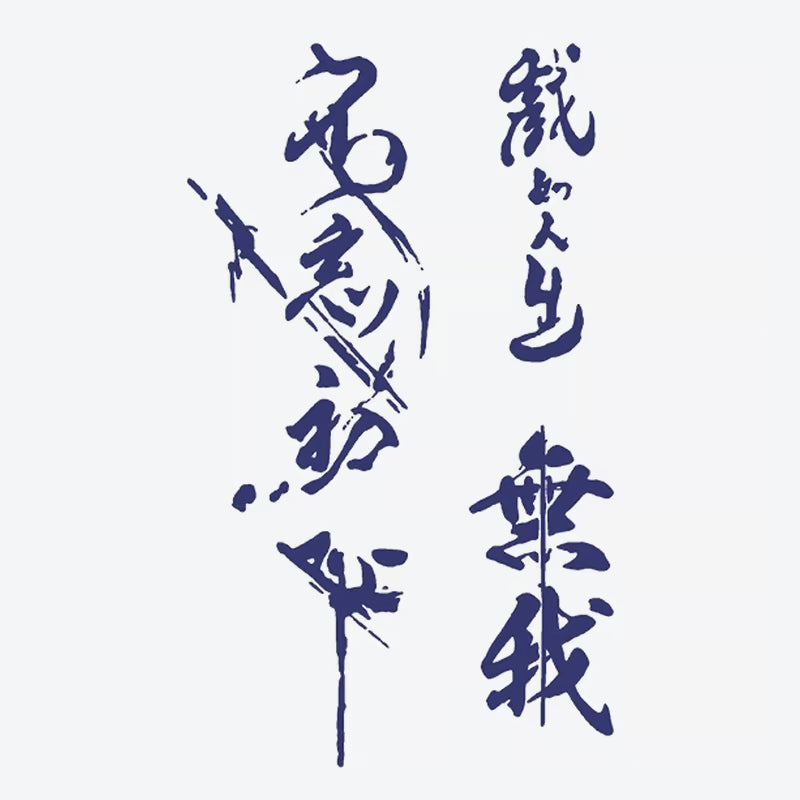 戲如人生
無我
忘初